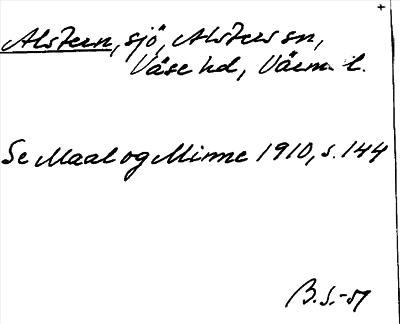 Alstern, sjö, Alsters sn,
Väse hd, Värml. l.
Se Maal og Minne 1910, s. 144
B.S.-51